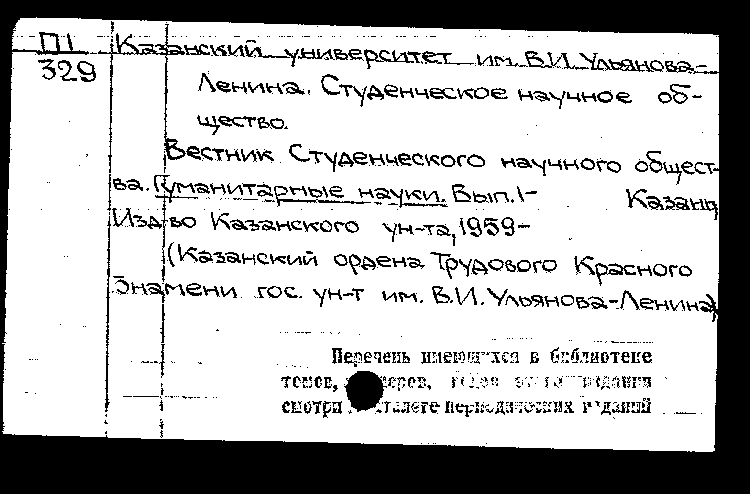 П1 Казанский университет им. В.И. Ульянова-
329 Ленина. Студенческое научное об-
щество.
Вестник Студенческого научного общест-
ва. Гуманитарные науки. Вып. 1- Казань,
Изд-во Казанского ун-та, 1959-
(Казанский ордена Трудового Красного
Знамени гос. ун-т им. В.И. Ульянова-Ленина)
Перечень имеющихся в библиотеке
томов, издания
смотри периодических изданий